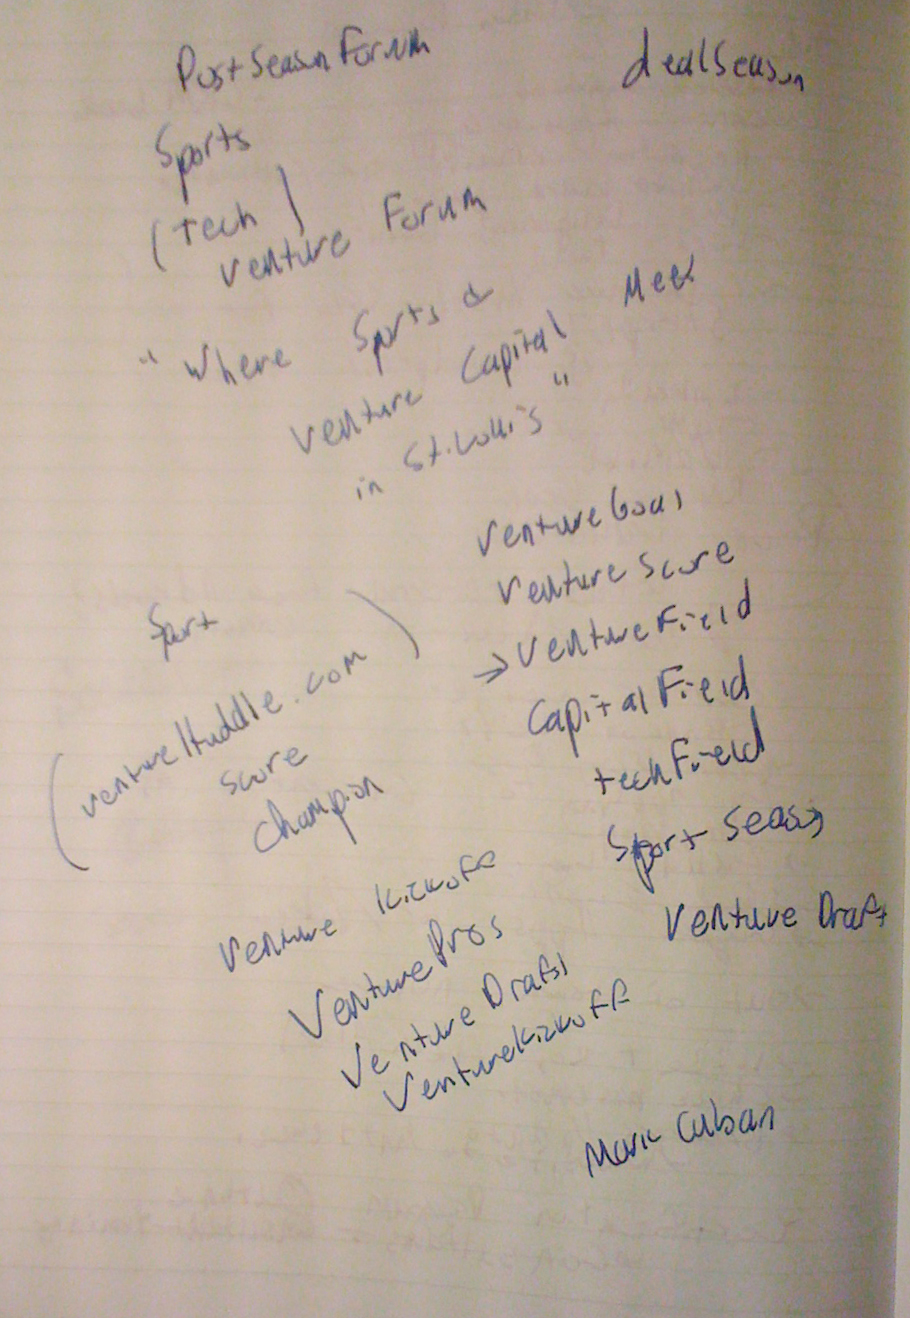 PostSeasonForum
dealSeason
Sports
(tech)
Venture Forum
"Where Sports &
Venture Capital Meet
in St. Louis"
VentureGoal
VentureScore
→ VentureField
CapitalField
techField
Sport Season
Venture Draft
Sport
(ventureHuddle.com)
Score
Champion
Venture Kickoff
VenturePros
VentureDraft
VentureKickoff
Mark Cuban